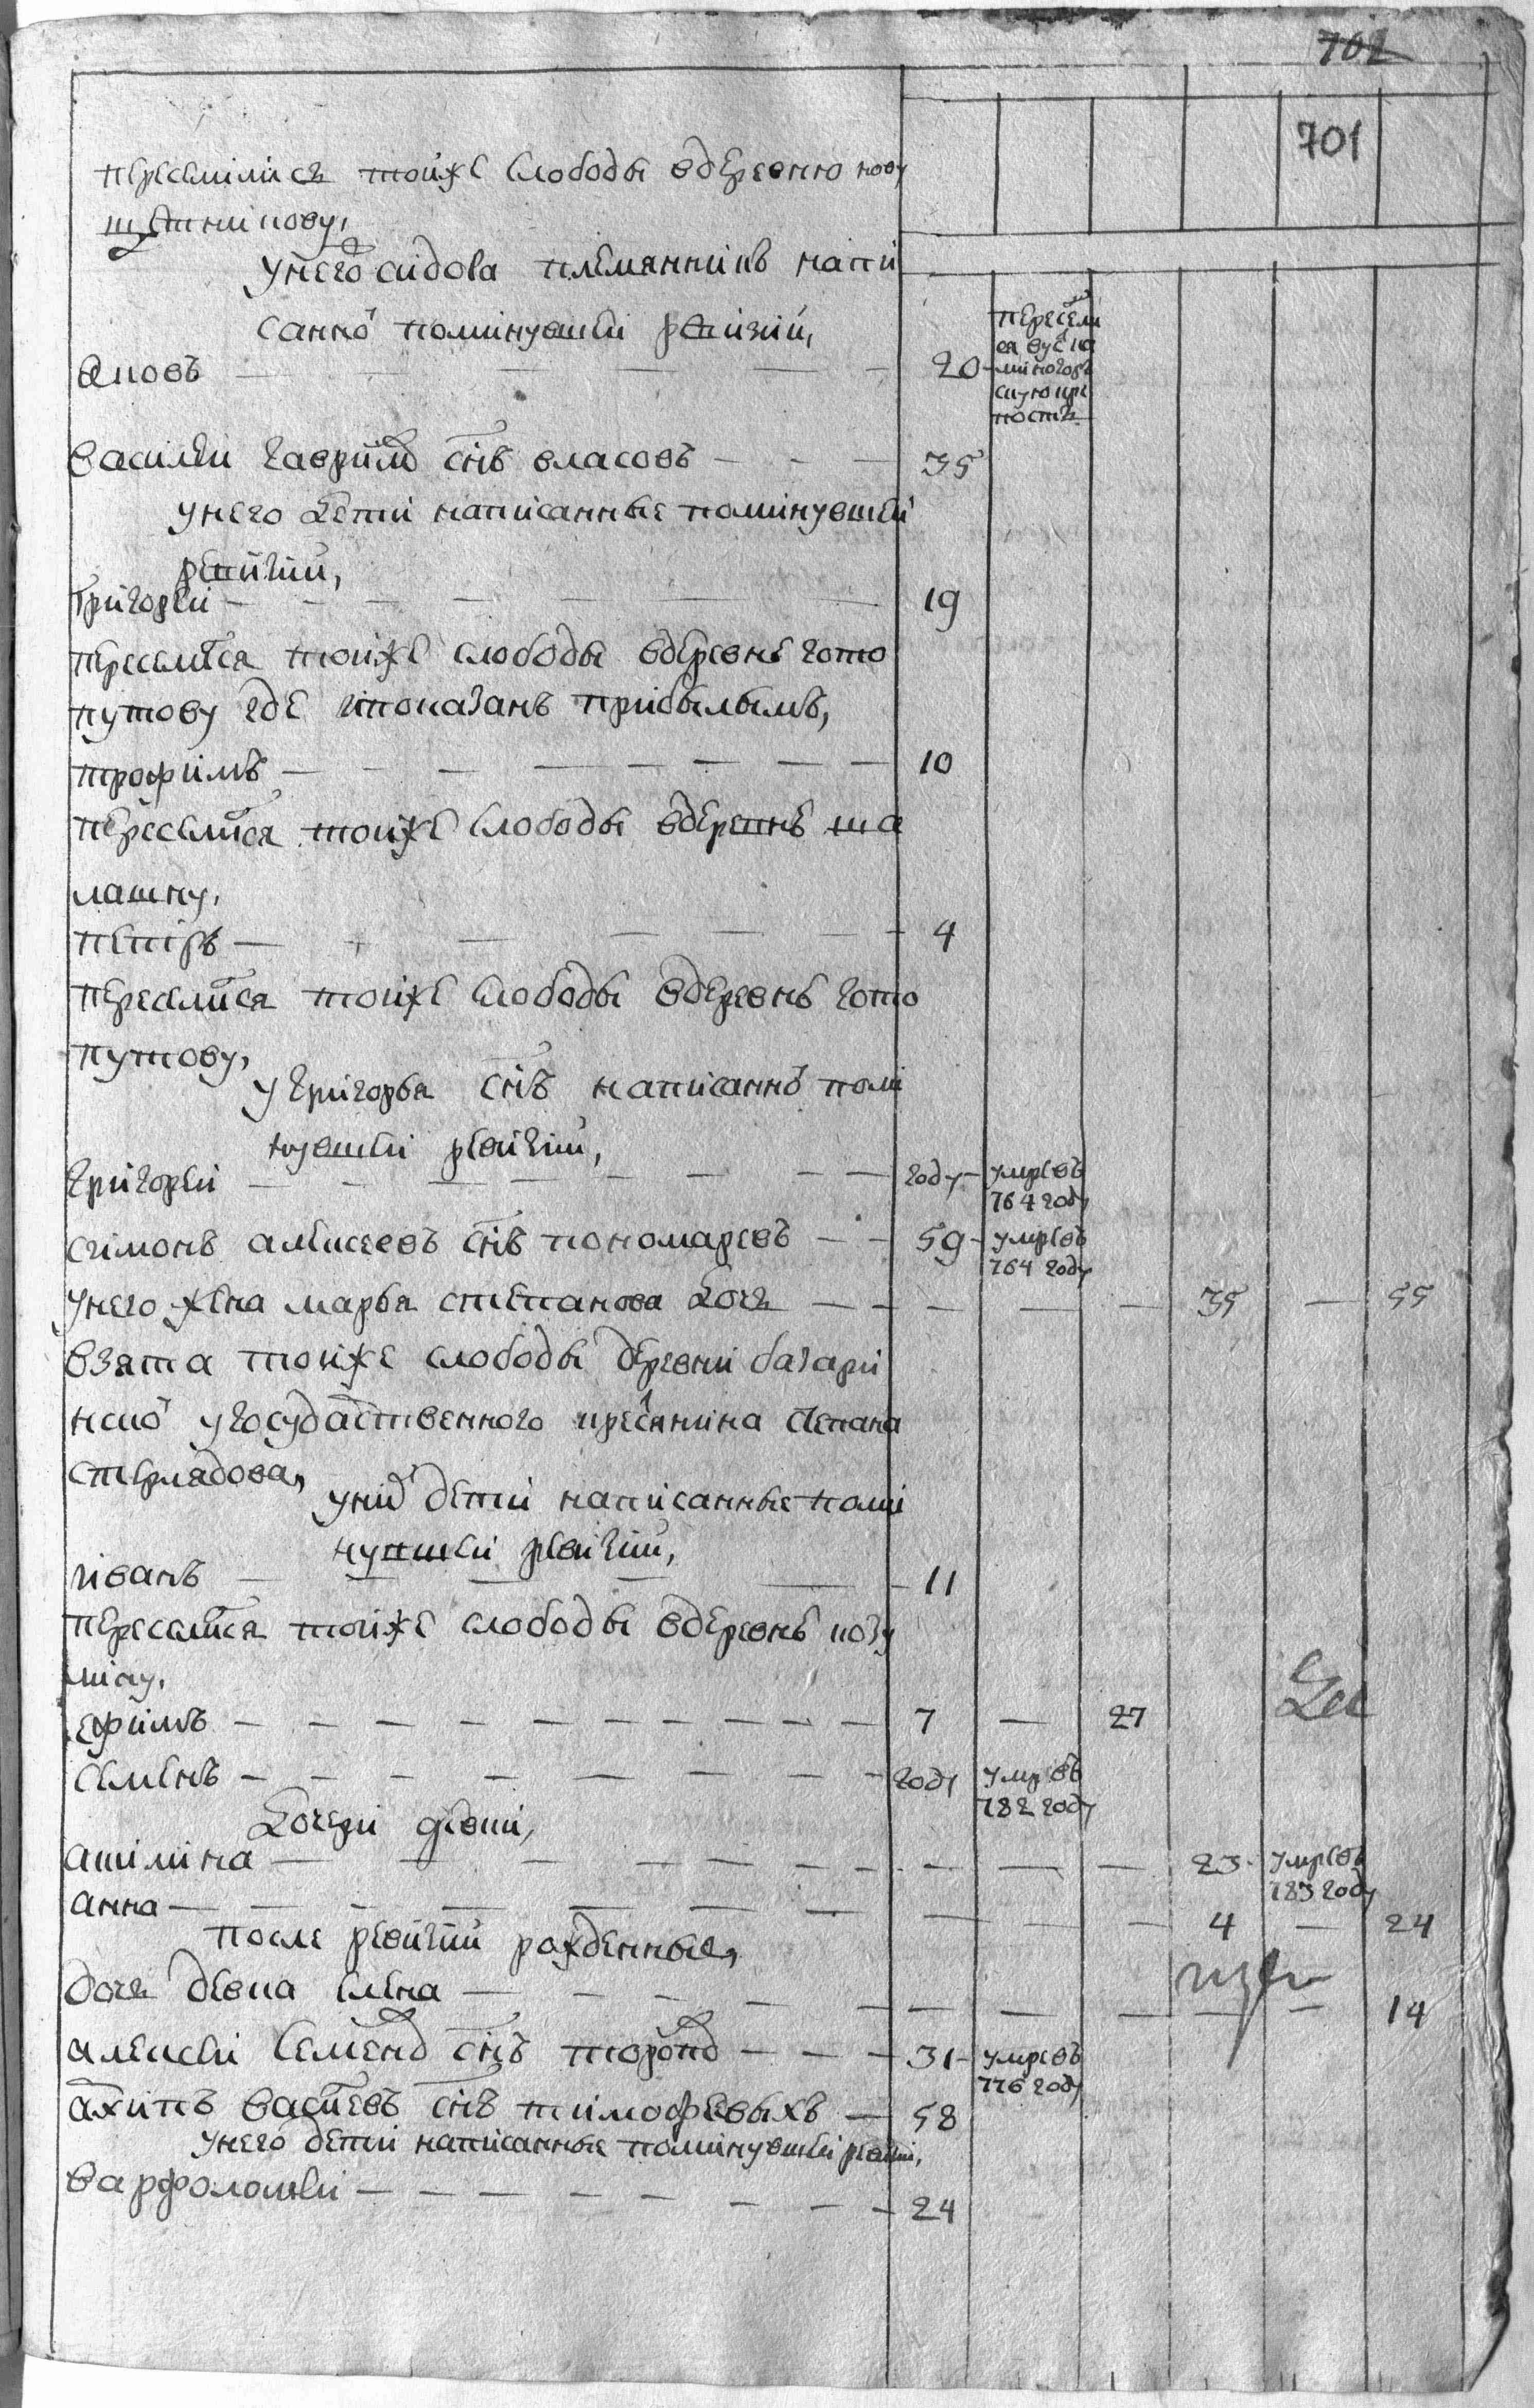 702
701
переселились тойже слободы вдеревню нову
щетникову,
унего сидора племянникъ напи
санно поминувшей ревизии,
яковъ — 20 — переселил
ся вусть ка
миногор
скую кре
пость
василей гаврилов снъ власовъ — 35
унего дети написанные поминувшей
ревизии,
григорей — 19
переселился тойже слободы вдеревнѣ гото
путову где ипоказанъ прибылымъ,
трофимъ — 10
переселился тойже слободы вдеревнѣ ша
лашну,
петръ — 4
переселился тойже слободы вдеревнѣ гото
путову,
угригорья снъ написанно поми
нувшей ревизии,
григорей — году — умре въ
764 году
симонъ алексеевъ снъ пономаревъ — 59 — умре въ
764 году
унего жена марья степанова дочь — 35 — 55
взята тойже слободы деревни базари
нско угосударственного крестьянина степана
стерлядова,
уних дети написанные поми
нувшей ревизии,
иванъ — 11
переселился тойже слободы вдеревнѣ козу
мину,
ефимъ — 7 — 27
семенъ — году умре въ
782 году
дочери девки,
акилина — 23 — умре въ
783 году
анна — 4 — 24
после ревизии рожденные,
дочь девка елена — 14
алексей семенов снъ торопов — 31 — умре въ
776 году
архипъ васильевъ снъ тимофеевыхъ — 58
унего дети написанные поминувшей ревизии,
варфоломей — 24